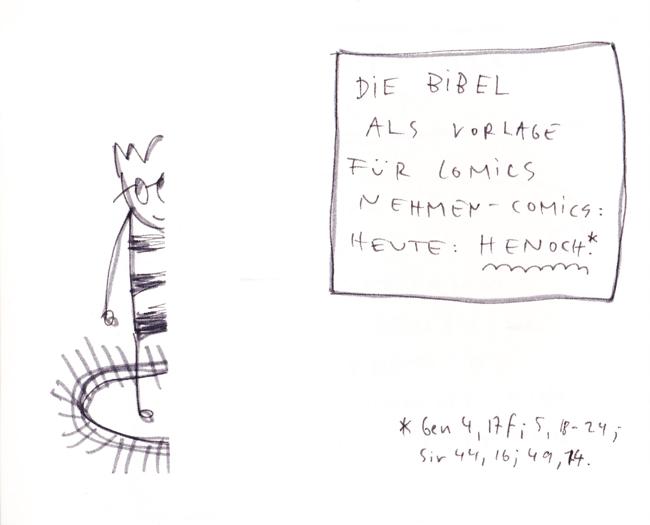 DIE BIBEL
ALS VORLAGE
FÜR COMICS
NEHMEN-COMICS:
HEUTE: HENOCH.*
* Gen 4, 17f; 5, 18-24;
Sir 44, 16; 49, 14.